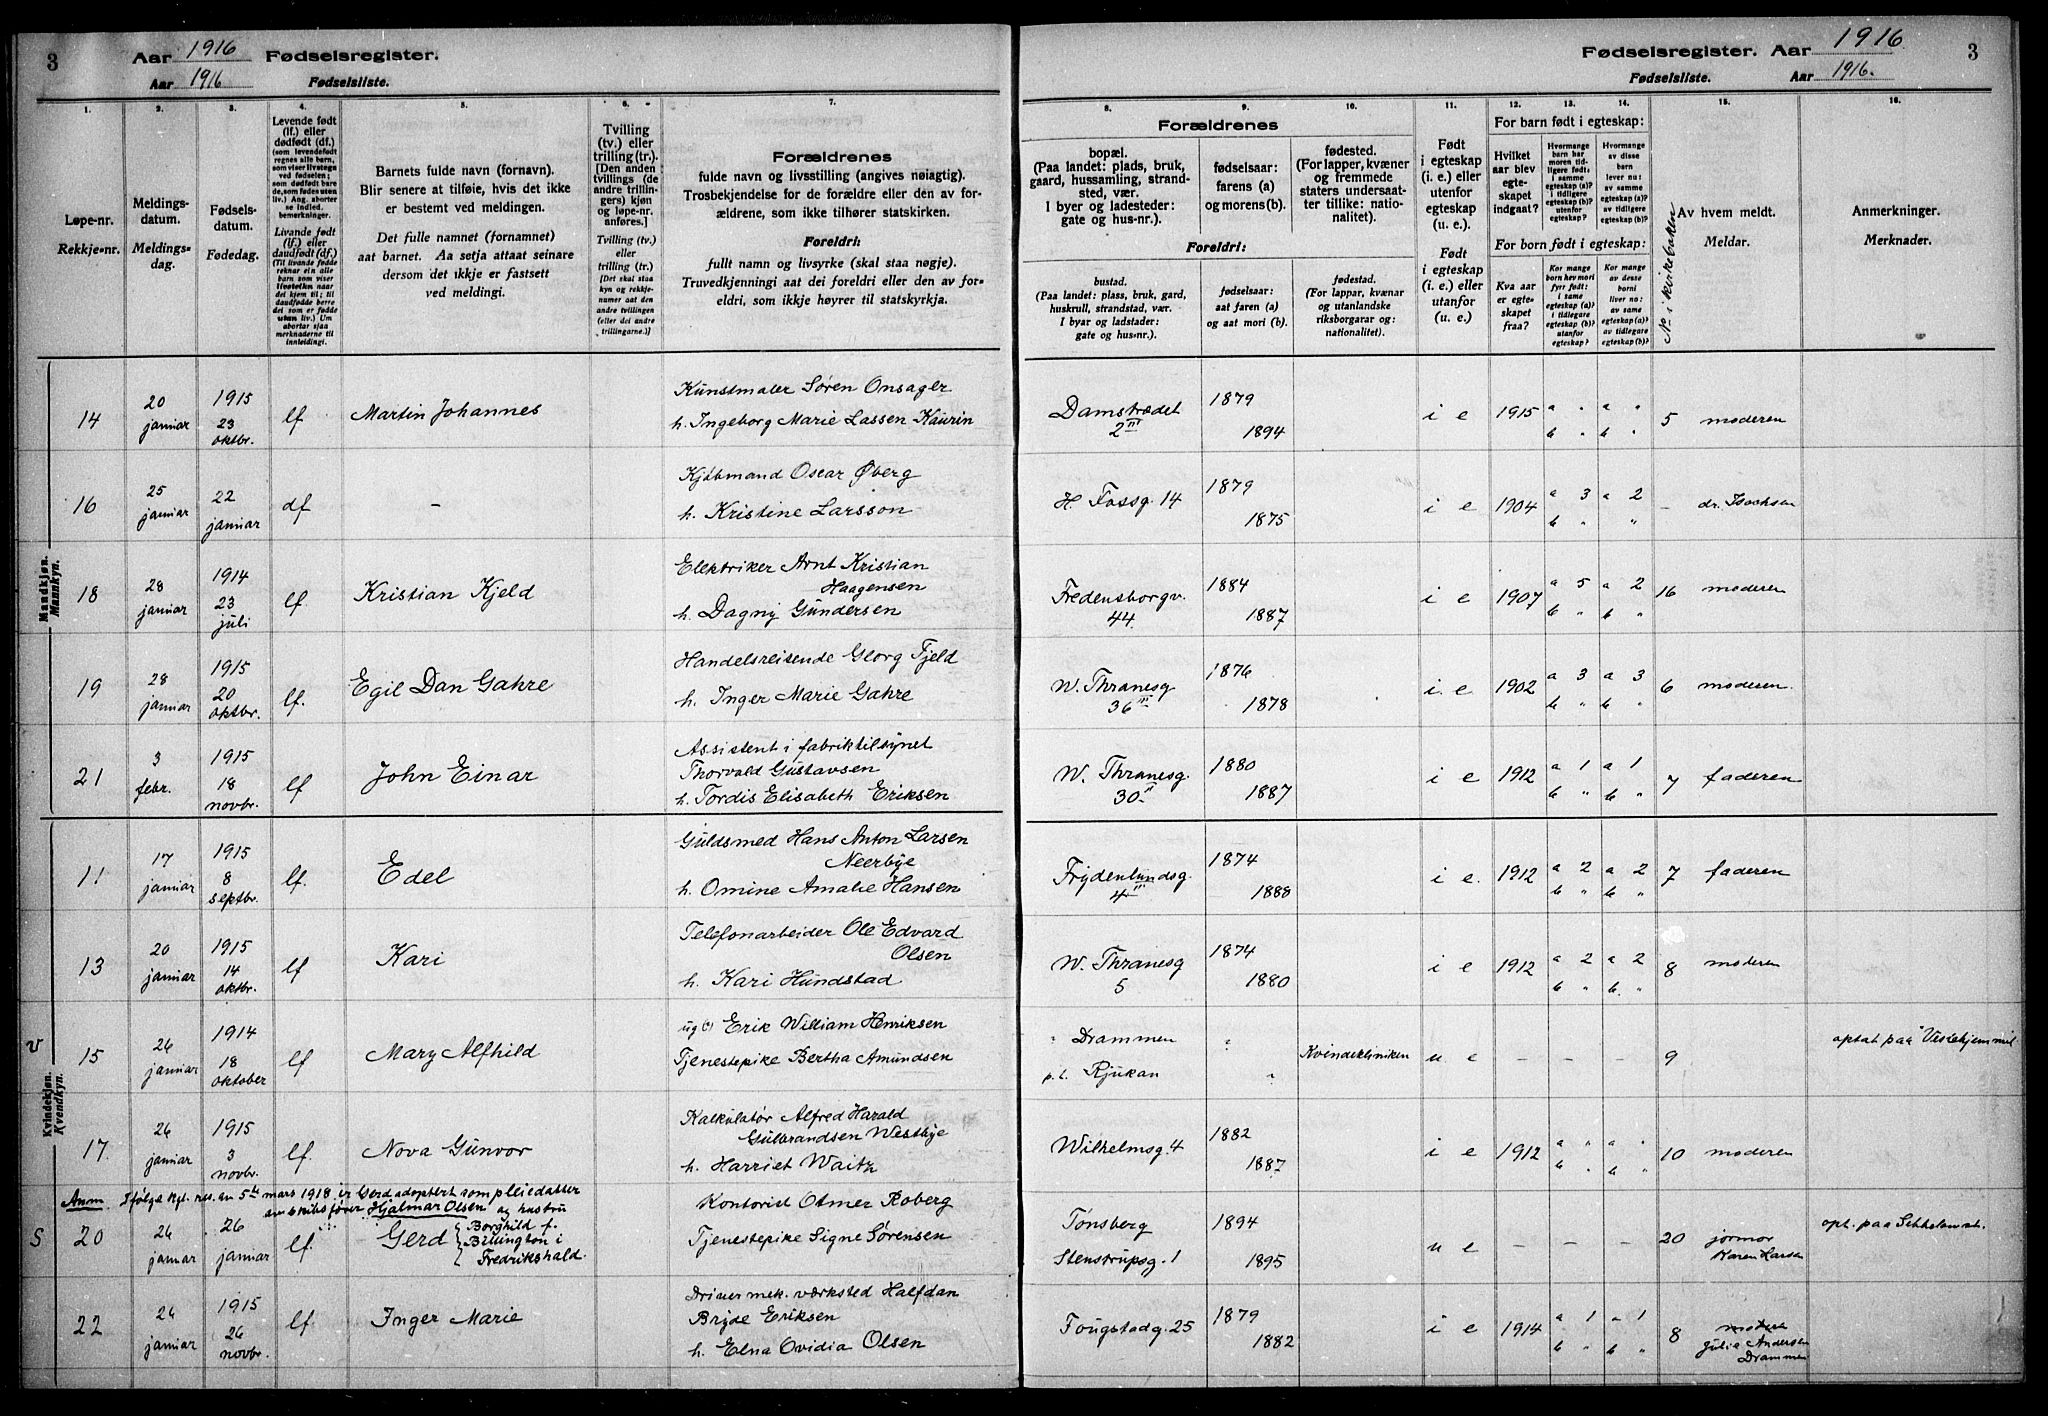 3 Aar 1916 Fødselsregister.
Aar 1916 Fødselsliste.
1. 2. 3. 4. 5. 6. 7.
Løpe-nr.
Rekkje-nr.
Meldings-
datum.
Meldings-
dag.
Fødsels-
datum.
Fødedag.
Levende født
(lf.) eller
dødfødt (df.)
Livande født
(lf.) eller
daudfødt (df.)
Barnets fulde navn (fornavn).
Blir senere at tilføie, hvis det ikke
er bestemt ved meldingen.
Det fulle namnet (fornamnet)
aat barnet. Aa setja attaat seinare
dersom det ikkje er fastsett
ved meldingi.
Tvilling
(tv.) eller
trilling (tr.).
[Den anden
tvillings (de
andre trillin-
gers) kjøn
og løpe-nr.
anføres.]
Tvilling (tv.)
eller
trilling (tr.)
[Det skal staa
kyn og rekkje-
numer aat den
andre tvillingen
(eller dei andre
trillingarne.)]
Forældrenes
fulde navn og livsstilling (angives nøiagtig).
Trosbekjendelse for de forældre eller den av for-
ældrene, som ikke tilhører statskirken.
Foreldri:
fullt namn og livsyrke (skal staa nøgje).
Truvedkjenningi aat dei foreldri eller den av for-
eldri, som ikkje høyrer til statskyrkja.
Mandkjøn.
Mannkyn.
14 20 januar 1915 23 oktbr. lf Martin Johannes
Kunstmaler Søren Onsager
h. Ingeborg Marie Lassen Kaurin
16 25 januar 22 januar df -
Kjøbmand Oscar Øberg
h. Kristine Larsson
18 28 januar 1914 23 juli lf. Kristian Kjeld
Elektriker Arnt Kristian
Haagensen
h. Dagny Gundersen
19 28 januar 1915 20 oktbr. lf. Egil Dan Gahre
Handelsreisende Georg Fjeld
h. Inger Marie Gahre
21 3 febr. 1915 18 novbr. lf John Einar
Assistent i fabriktilsynet
Thorvald Gustavsen
h. Tordis Elisabeth Eriksen
Kvindekjøn.
Kvendkyn.
11 17 januar 1915 8 septbr. lf. Edel
Guldsmed Hans Anton Larsen
Neerbye
h. Omine Amalie Hansen
13 20 januar 1915 14 oktbr. lf Kari
Telefonarbeider Ole Edvard
Olsen
h. Kari Hundstad
v 15 26 januar 1914 18 oktober lf Mary Alfhild
ug(?) Erik William Henriksen
Tjenestepike Bertha Amundsen
17. 26 januar 1915 3 novbr. lf. Nova Gunvor
Kalkulatør Alfred Harald
Gulbrandsen Westbye
h. Harriet Waitz
Anm Ifølge kgl. res. av 5te mars 1918 er Gerd adoptert som pleiedatter
Hjalmar Olsen og hustru
S 20 26 januar 26 januar lf. Gerd Borghild f.
Billington i
Fredrikshald.
Kontorist Otmer Roberg
Tjenestepike Signe Sørensen
22 24 januar 1915 26 novbr. lf. Inger Marie
Driver mek. værksted Halfdan
Bryde Eriksen
h. Elna Ovidia Olsen
Fødselsregister. Aar 1916 3
Fødselsliste. Aar 1916.
8. 9. 10. 11. 12. 13. 14. 15. 16.
Forældrenes
bopæl.
(Paa landet: plads, bruk,
gaard, hussamling, strand-
sted, vær.
I byer og ladesteder:
gate og hus-nr.).
fødselsaar:
farens (a)
og morens (b).
fødested.
(For lapper, kvæner
og fremmede
staters undersaat-
ter tillike: na-
tionalitet).
Foreldri:
bustad.
(Paa landet: plass, bruk, gard,
huskrull, strandstad, vær.
I byar og ladstader:
gate og hus-nr.).
fødselsaar:
aat faren (a)
og aat mori (b).
fødestad.
(For lappar, kvænar
og utanlandske
riksborgarar og:
nationalitet).
Født
i egteskap
(i. e.) eller
utenfor
egteskap
(u. e.).
Født
i egteskap
(i. e.) eller
utanfor
(u. e.).
For barn født i egteskap:
Hvilket
aar blev
egte-
skapet
indgaat?
For born født i egteskap:
Kva aar
er egte-
skapet
fraa?
No i kirkeboken
Av hvem meldt.
Meldar.
Anmerkninger.
Merknader.
Damstrædet 2 III 1879 1894 i e 1915 a " a " b " b " 5 moderen
H. Fossg. 14 1879 1875 i e 1904 a 3 a 2 b " " - dr. Isachsen
Fredensborgv. 44. 1884 1887 i e 1907 a 5 a 2 b " b " 16 moderen
W. Thranesg 36 III 1876 1878 i e 1902 a 3 a 3 b " b " 6 moderen.
W. Thranesg. 30 II 1880 1887 i e 1912 a 1 a 1 b " b " 7 faderen
Frydenlundsg. 4 III 1874 1888 i e. 1912 a 2 a 2 b " b " 7 faderen
W. Thranesg 5 1874 1880 i e 1912 a 2 a 2 b " b " 8 moderen
" Drammen " Kvindekliniken u e - - - 9 optat paa Vestehjemmet
p.t. Rjukan "
Wilhelmsg. 4 1882 1887 i e 1912 a " a " b " b " 10 moderen
Tønsberg 1894 u e - - - 20 jormor
Stenstrupsg. 1 1895 Karen Larsen
Fougstadg. 25 1879 1882 i e 1914 a 1 a 1 b " b " 8 moderen
Julie Andersen
Drammen